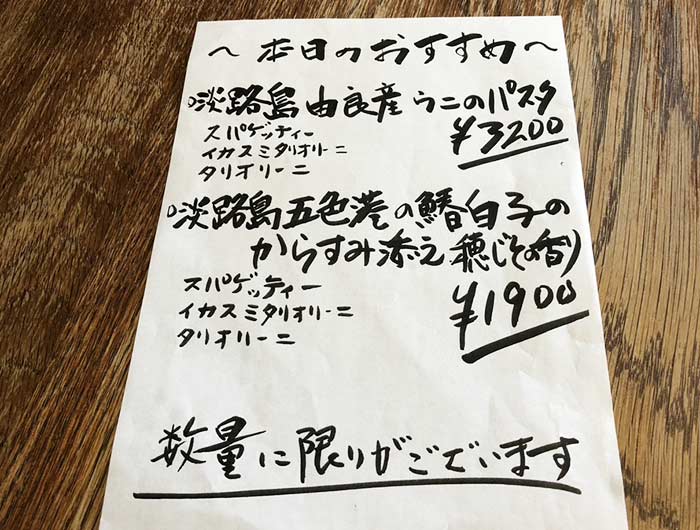 ～本日のおすすめ～
○淡路島由良産ウニのパスタ
スパゲッティー
¥3200
イカスミタリオリーニ
タリオリーニ
○淡路島五色港の鰆白子の
からすみ添え 穂じその香り
スパゲッティー
¥1900
イカスミタリオリーニ
タリオリーニ
数量に限りがございます